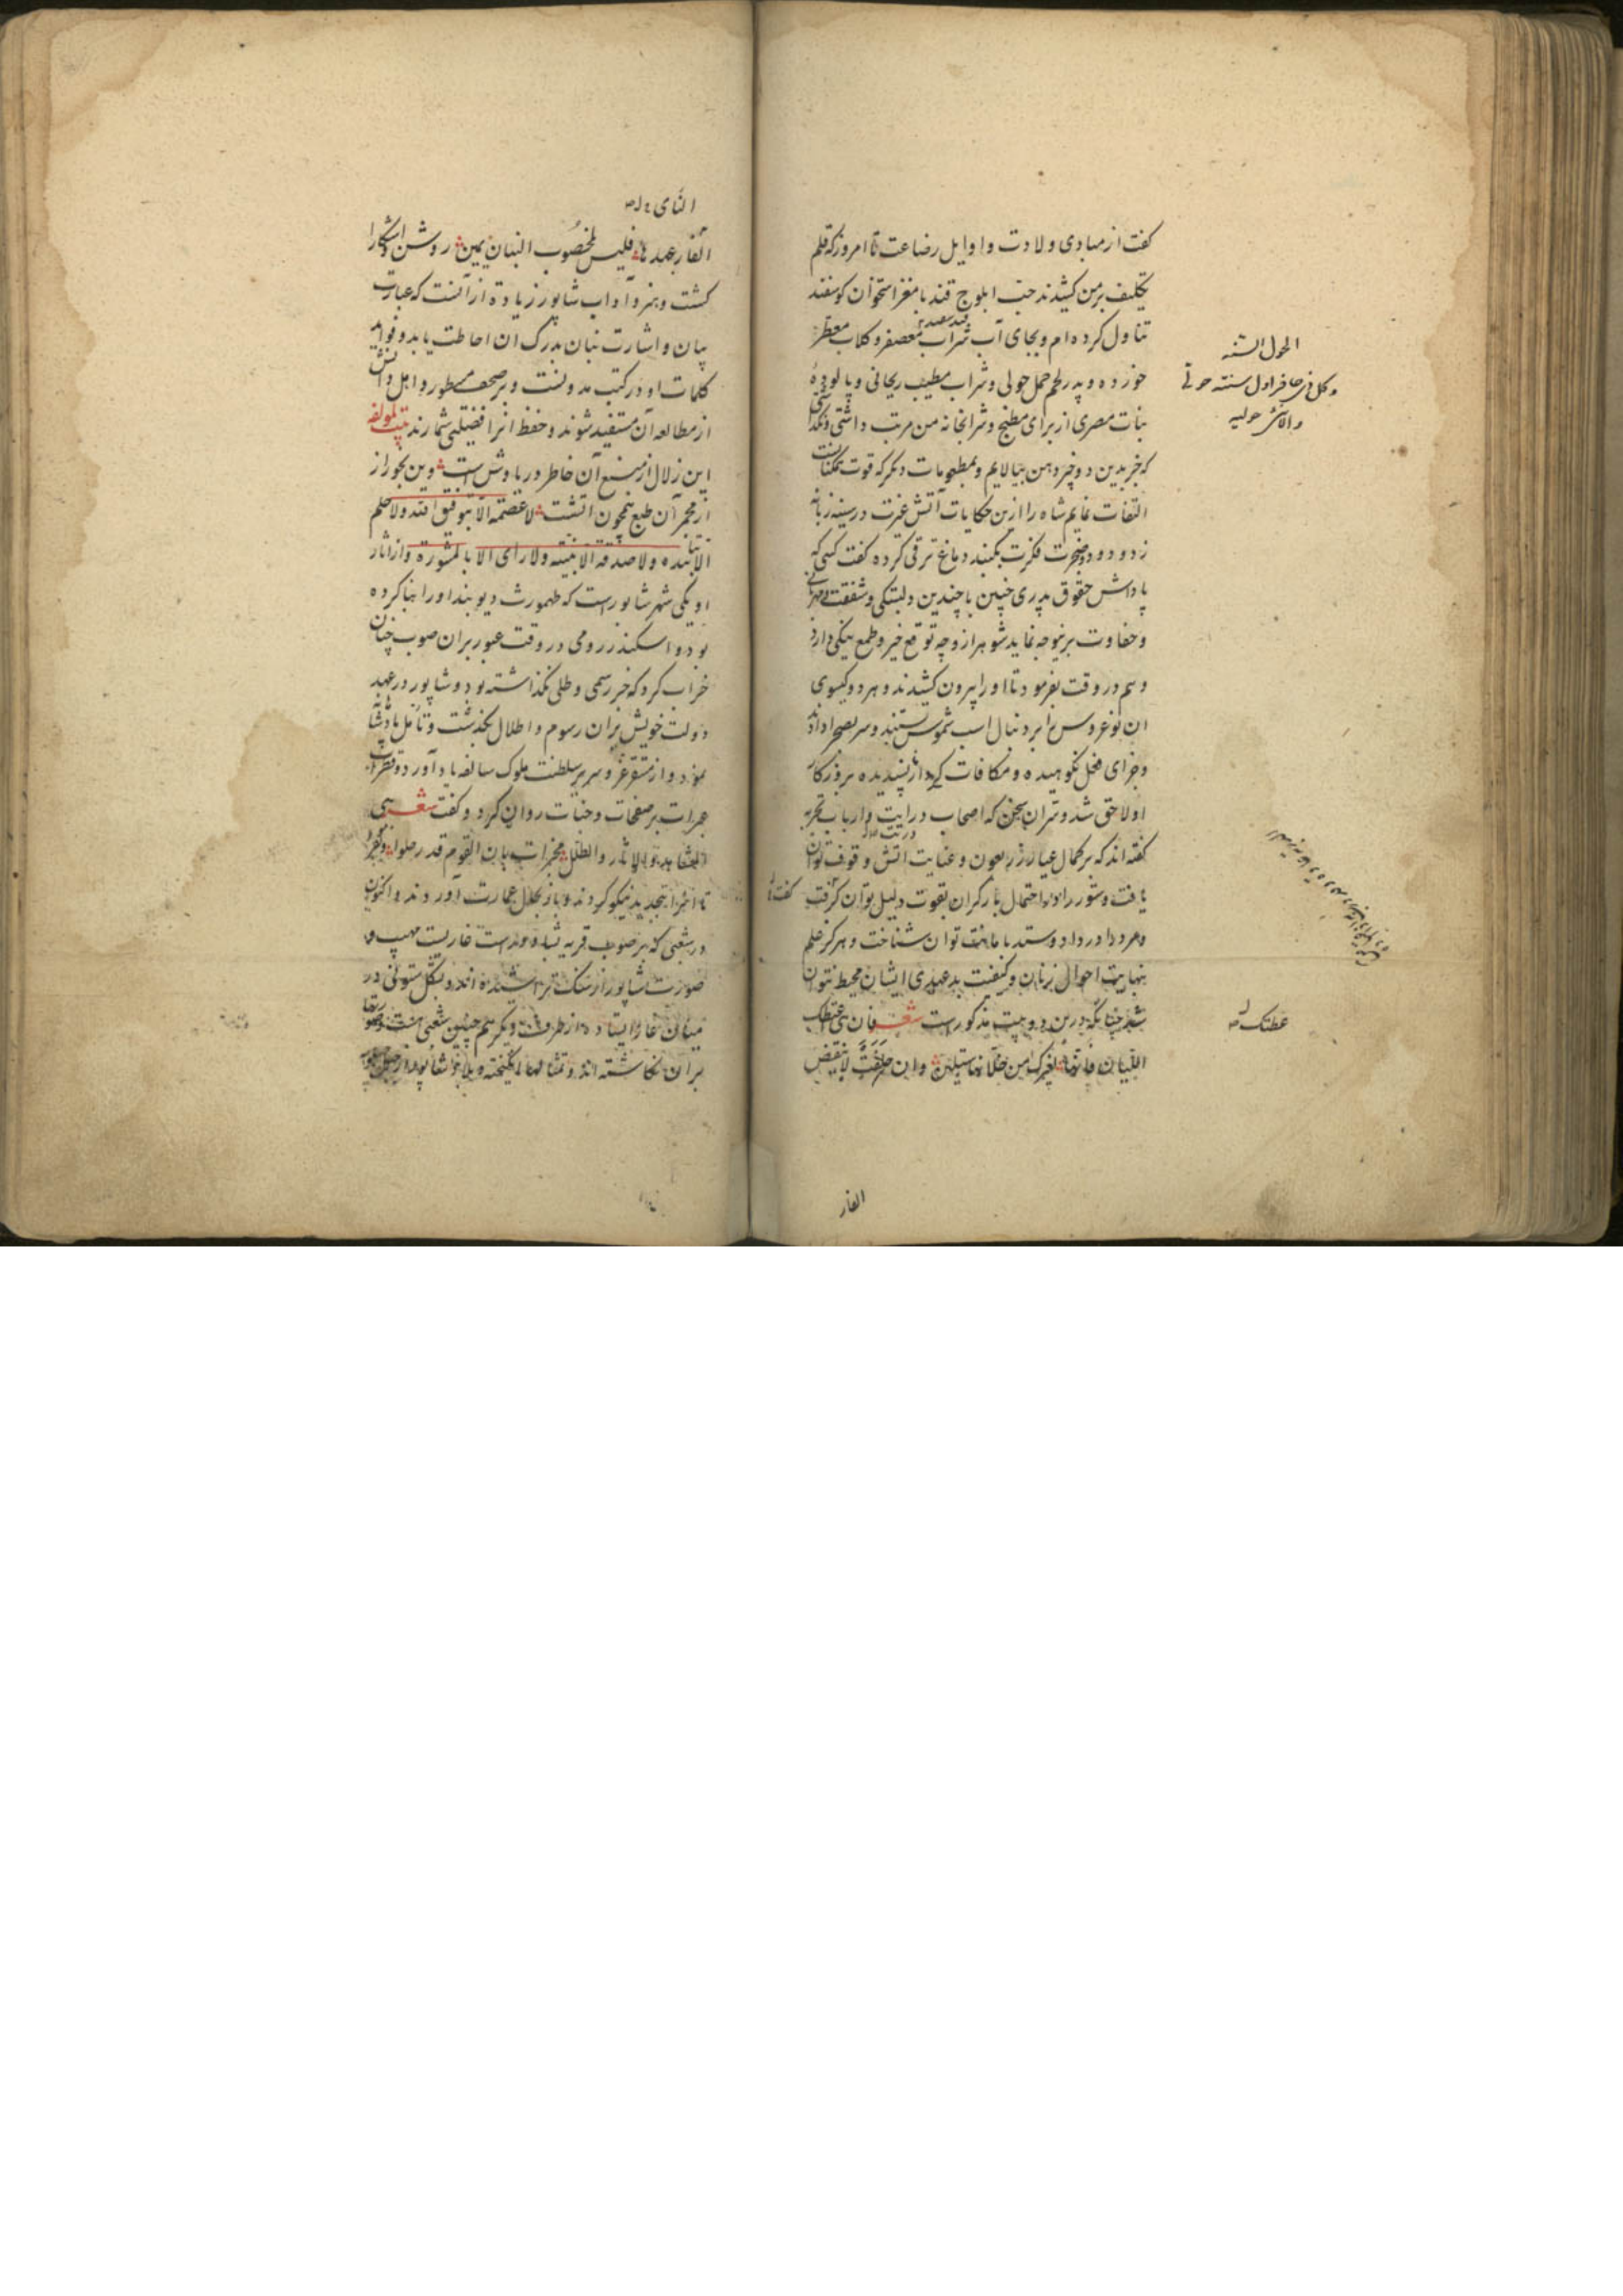 کفت از مبادی ولادت و اوایل رضاعت تا امروز که قلم
تکلیف بر من کشیدند حب ابلوج قند با مغز استخوان کوسفند
تناول کرده‌ام و بجای آب شراب معصفر و کلاب معطر
خورده و پدر لحم حمل حولی و شراب مطیب ریحانی و پالوده
نبات مصری از برای مطبخ و شرابخانه من مرتب داشتی
که جز بدین دو چیز دهن بیالایم و بمطبوعات دیکر که قوت
التفات نمایم شاه را ازین حکایات آتش غیرت در سینه زبانه
زد و دود ضجرت فکرت بکنبد دماغ ترقی کرده کفت کسی که
پاداش حقوق پدری چنین با چندین دلبستکی و شفقت
و حفاوت برینوجه نماید شوهر ازو چه توقع خیر و طمع نیکی دارد
و هم در وقت بفرمود تا او را بیرون کشیدند و هر دو کیسوی
ان نوعروس را بر دنبال اسب شموس بستند و سر بصحرا دادند
و جزای فعل نکوهیده و مکافات کردار ناپسندیده بروزکار
او لاحق شد و بدان سخن که اصحاب درایت و ارباب تجربه
کفته‌اند که بر کمال عیار زر بعون و عنایت اتش وقوف توان
یافت و ستور را در احتمال بار کران بقوت دلیل توان کرفت
و مرد را در داد و ستد با مانت توان شناخت و هرکز علم
بنهایت احوال زنان و کیفیت بدعهدی ایشان محیط نتوان
شد چنانکه درین دو بیت مذکورست شعر فان هی اعطتک
اللیان فانها لغیرک من خلانها ستلین وان حلفت لا ینقض
الحول السنه
وکل ذی حافر اول سنته حولی
والانثی حولیه
عطتک
الفار
النای
النای عهدها فلیس لمخضوب البنان یمین روشن و اشکارا
کشت و هنر و آداب شاپور زیاده از آنست که عبارت
بیان و اشارت بنان بدرک ان احاطت یابد و فواید
کلمات او در کتب مدونست و بر صحف مسطور و اهل دانش
از مطالعه آن مستفید شوند و حفظ انرا فضیلتی شمارند بیت لمولفه
این زلال از منبع آن خاطر دریاوش است وین بخور از
از مجمر آن طبع همچون آتشست لا عصمة الا بتوفیق الله ولا حلم
ولا صدقة الا بنیته ولا رای الا بالمشورة و از آثار
او یکی شهر شاپورست که طهمورث دیوبند اورا بنا کرده
بود و اسکندر رومی در وقت عبور بران صوب چنان
خراب کرد که جز رسمی و طللی نکذاشته بود و شاپور در عهد
دولت خویش بران رسوم و اطلال بکذشت و تامل پادشاهانه
نمود و از مستقر عز و سریر سلطنت ملوک سالفه یاد آورد و قطرات
عبرات بر صفحات وجنات روان کرد و کفت شعر
والطلل مخبرات بان القوم قد رحلوا
تا انرا بتجدید نیکو کردند و باز بحلل عمارت آوردند و اکنون
در شعبی که بر صوب قریه غاریست مهیب و
صورت شاپور از سنک تراشیده‌اند و بشکل ستونی در
میان غار ایستاده از طرف دیکر هم چنین شعبی هست
بران نکاشته‌اند و تمثالها انکیخته